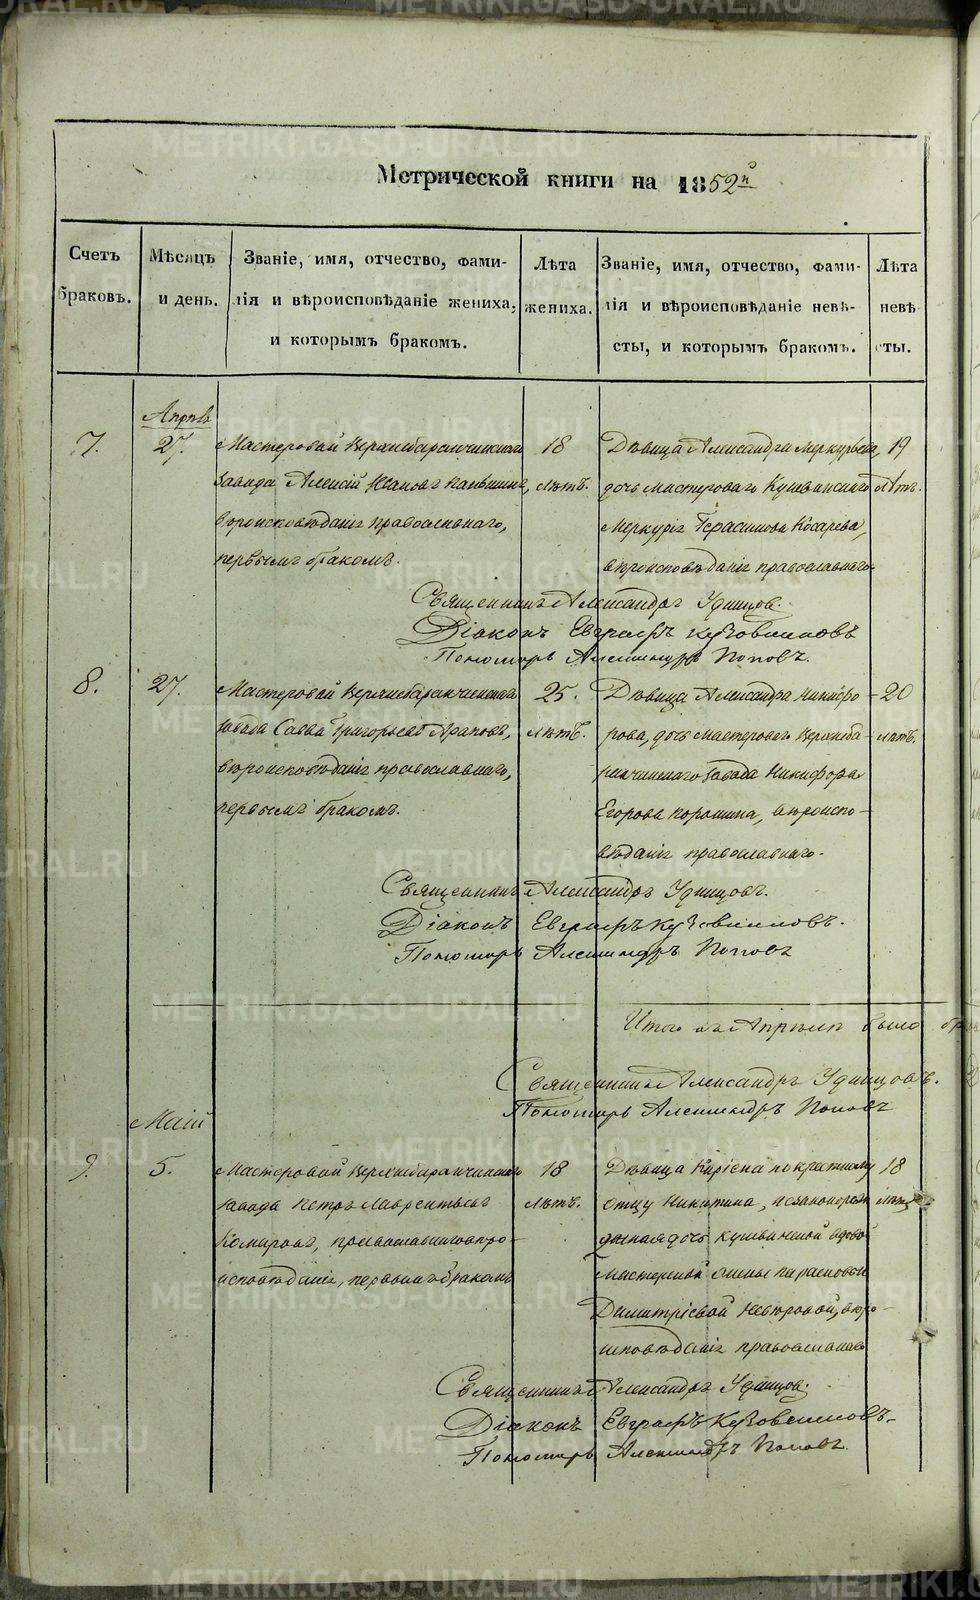 METRIKI.GASO-URAL.RU
Метрической книги на 1852й
Счетъ браковъ.
Мѣсяцъ и день.
Званіе, имя, отчество, фами-
лія и вѣроисповѣданіе жениха,
и которымъ бракомъ.
Лѣта жениха.
Званіе, имя, отчество, фами-
лія и вѣроисповѣданіе невѣ-
сты, и которымъ бракомъ.
Лѣта невѣсты.
7.
Апрѣль
27.
Мастеровой Верхнебаранчинскаго
завода Алексій Ивановъ
вѣроисповѣданія православнаго,
первымъ бракомъ.
18
лѣтъ.
Дѣвица Александра Меркурьева,
дочь мастероваго Кушвинскаго
Меркурія Герасимова Косарева,
вѣроисповѣданія православнаго.
19
лѣтъ.
Священникъ Александръ Удинцов.
Діаконъ Евграфъ Кузовниковъ
Пономарь Александръ Поповъ.
8.
27.
Мастеровой Верхнебаранчинскаго
завода Савва Григорьевъ Араповъ,
вѣроисповѣданія православнаго,
первымъ бракомъ.
25.
лѣтъ.
Дѣвица Александра Никифо-
рова, дочь мастероваго Верхнеба-
ранчинскаго завода Никифора
Егорова Корошина, вѣроиспо-
вѣданія православнаго.
20
лѣтъ.
Священникъ Александръ Удинцовъ.
Діаконъ Евграфъ Кузовниковъ.
Пономарь Александръ Поповъ
Итого въ Апрѣлѣ было бра
Священникъ Александръ Удинцовъ.
Пономарь Александръ Поповъ
9.
Маій
5.
Мастеровой Верхнебаранчинскаго
завода Петръ Лаврентьевъ
Комаровъ, православнаго вѣро-
исповѣданія, первымъ бракомъ
18
лѣтъ.
Дѣвица по крестному
отцу Никитина, незаконорож-
денная дочь кушвинской вдовой
мастерской жены Парасковьи
Димитріевой вѣро-
исповѣданія православнаго
18
лѣтъ
Священникъ Александръ Удинцов.
Діаконъ Евграфъ Кузовниковъ.
Пономарь Александръ Поповъ.